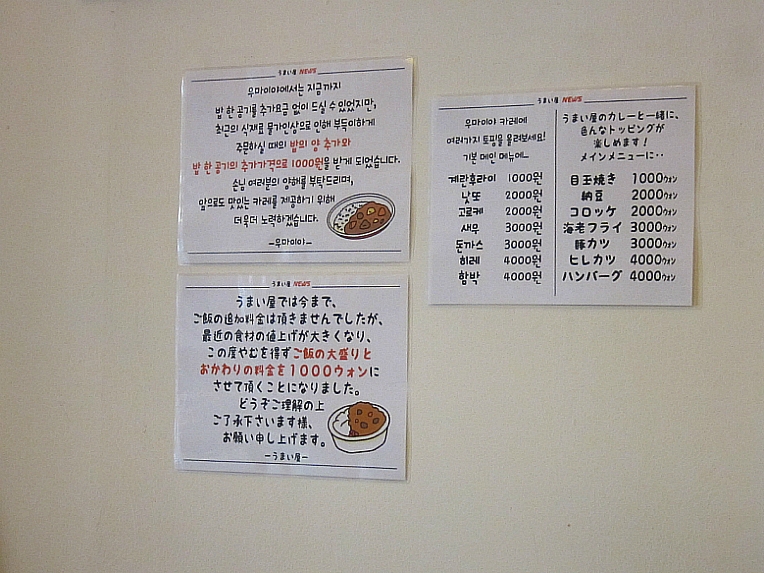 うまい屋 NEWS
우마이야에서는 지금까지
밥 한 공기를 추가요금 없이 드실 수 있었지만,
최근의 식재료 물가인상으로 인해 부득이하게
주문하실 때의 밥의 양 추가와
밥 한 공기의 추가가격으로 1000원을 받게 되었습니다.
손님 여러분의 양해를 부탁드리며,
앞으로도 맛있는 카레를 제공하기 위해
더욱더 노력하겠습니다.
-우마이야-
うまい屋 NEWS
うまい屋では今まで、
ご飯の追加料金は頂きませんでしたが、
最近の食材の値上げが大きくなり、
この度やむを得ずご飯の大盛りと
おかわりの料金を1000ウォンに
させて頂くことになりました。
どうぞご理解の上
ご了承下さいます様、
お願い申し上げます。
-うまい屋-
うまい屋 NEWS
우마이야 카레에
여러가지 토핑을 올려보세요!
기본 메인 메뉴에…
계란후라이 1000원
낫또 2000원
고로케 2000원
새우 3000원
돈가스 3000원
히레 4000원
함박 4000원
うまい屋のカレーと一緒に、
色んなトッピングが
楽しめます!
メインメニューに・・
目玉焼き 1000ウォン
納豆 2000ウォン
コロッケ 2000ウォン
海老フライ 3000ウォン
豚カツ 3000ウォン
ヒレカツ 4000ウォン
ハンバーグ 4000ウォン